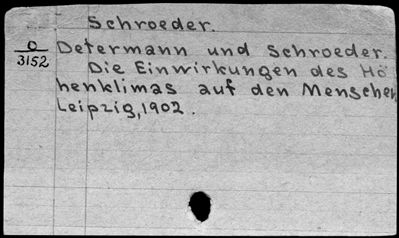 Schroeder.
O
3152
Determann und Schroeder.
Die Einwirkungen des Hö
henklimas auf den Menschen
Leipzig, 1902.